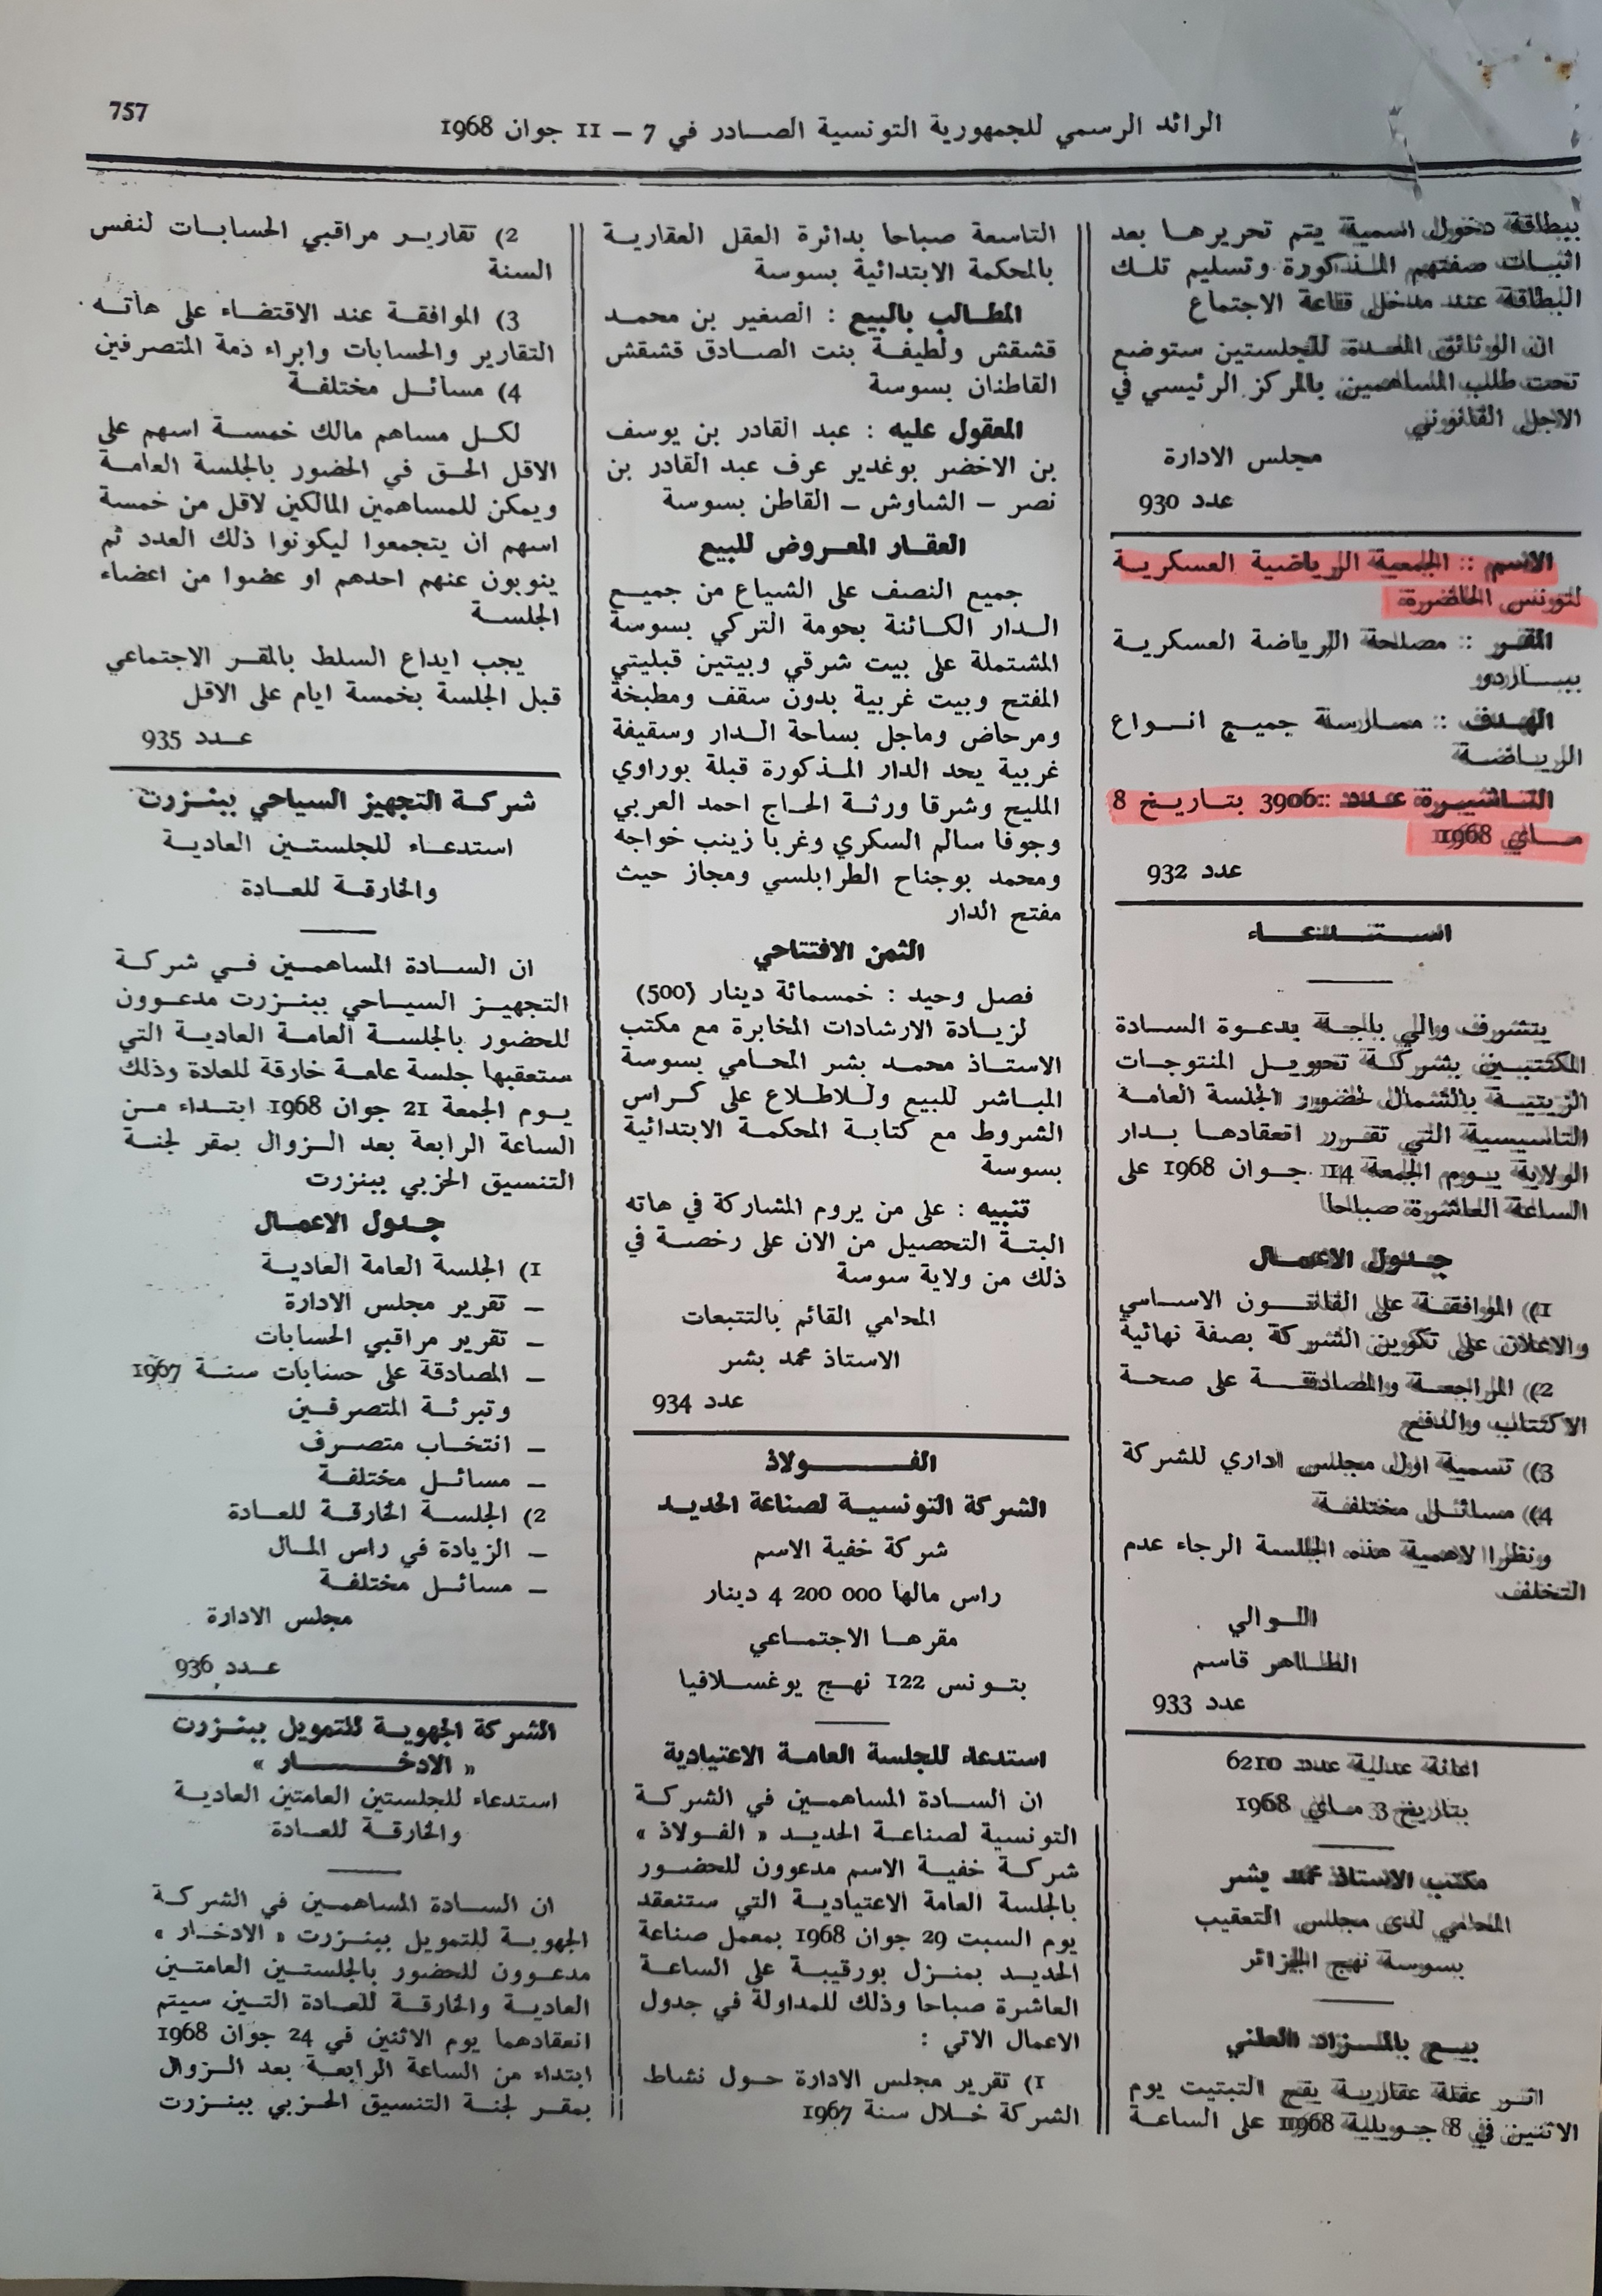 757
الرائد الرسمي للجمهورية التونسية الصادر في 7 – 11 جوان 1968
ببطاقة دخول اسمية يتم تحريرها بعد
اثبات صفتهم المذكورة وتسليم تلك
البطاقة عند مدخل قاعة الاجتماع
ان الوثائق المعدة للجلستين ستوضع
تحت طلب المساهمين بالمركز الرئيسي في
الاجل القانوني
مجلس الادارة
عدد 930
الاسم : الجمعية الرياضية العسكرية
لتونس الحاضرة
المقر : مصلحة الرياضة العسكرية
بباردو
الهدف : ممارسة جميع انواع
الرياضة
التاشيرة عدد : 3906 بتاريخ 8
ماي 1968
عدد 932
استدعاء
يتشرف والي باجة بدعوة السادة
المكتتبين بشركة تحويل المنتوجات
الزيتية بالشمال لحضور الجلسة العامة
التاسيسية التي تقرر انعقادها بدار
الولاية يوم الجمعة 14 جوان 1968 على
الساعة العاشرة صباحا
جدول الاعمال
1) الموافقة على القانون الاساسي
والاعلان على تكوين الشركة بصفة نهائية
2) المراجعة والمصادقة على صحة
الاكتتاب والدفع
3) تسمية اول مجلس اداري للشركة
4) مسائل مختلفة
ونظرا لاهمية هذه الجلسة الرجاء عدم
التخلف
الوالي
الطاهر قاسم
عدد 933
اعانة عدلية عدد 6210
بتاريخ 3 ماي 1968
مكتب الاستاذ محمد بشر
المحامي لدى مجلس التعقيب
بسوسة نهج الجزائر
بيع بالمزاد العلني
اثر عقلة عقارية يقع التبتيت يوم
الاثنين في 8 جويلية 1968 على الساعة
التاسعة صباحا بدائرة العقل العقارية
بالمحكمة الابتدائية بسوسة
المطالب بالبيع : الصغير بن محمد
قشقش ولطيفة بنت الصادق قشقش
القاطنان بسوسة
المعقول عليه : عبد القادر بن يوسف
بن الاخضر بوغدير عرف عبد القادر بن
نصر – الشاوش – القاطن بسوسة
العقار المعروض للبيع
جميع النصف على الشياع من جميع
الدار الكائنة بحومة التركي بسوسة
المشتملة على بيت شرقي وبيتين قبليتي
المفتح وبيت غربية بدون سقف ومطبخة
ومرحاض وماجل بساحة الدار وسقيفة
غربية يحد الدار المذكورة قبلة بوراوي
المليح وشرقا ورثة الحاج احمد العربي
وجوفا سالم السكري وغربا زينب خواجه
ومحمد بوجناح الطرابلسي ومجاز حيث
مفتح الدار
الثمن الافتتاحي
فصل وحيد : خمسمائة دينار (500)
لزيادة الارشادات المخابرة مع مكتب
الاستاذ محمد بشر المحامي بسوسة
المباشر للبيع وللاطلاع على كراس
الشروط مع كتابة المحكمة الابتدائية
بسوسة
تنبيه : على من يروم المشاركة في هاته
البتة التحصيل من الان على رخصة في
ذلك من ولاية سوسة
المحامي القائم بالتتبعات
الاستاذ محمد بشر
عدد 934
الفولاذ
الشركة التونسية لصناعة الحديد
شركة خفية الاسم
راس مالها 000 200 4 دينار
مقرها الاجتماعي
بتونس 122 نهج يوغسلافيا
استدعاء للجلسة العامة الاعتيادية
ان السادة المساهمين في الشركة
التونسية لصناعة الحديد « الفولاذ »
شركة خفية الاسم مدعوون للحضور
بالجلسة العامة الاعتيادية التي ستنعقد
يوم السبت 29 جوان 1968 بمعمل صناعة
الحديد بمنزل بورقيبة على الساعة
العاشرة صباحا وذلك للمداولة في جدول
الاعمال الاتي :
1) تقرير مجلس الادارة حول نشاط
الشركة خلال سنة 1967
2) تقارير مراقبي الحسابات لنفس
السنة
3) الموافقة عند الاقتضاء على هاته
التقارير والحسابات وابراء ذمة المتصرفين
4) مسائل مختلفة
لكل مساهم مالك خمسة اسهم على
الاقل الحق في الحضور بالجلسة العامة
ويمكن للمساهمين المالكين لاقل من خمسة
اسهم ان يتجمعوا ليكونوا ذلك العدد ثم
ينوبون عنهم احدهم او عضوا من اعضاء
الجلسة
يجب ايداع السلط بالمقر الاجتماعي
قبل الجلسة بخمسة ايام على الاقل
عدد 935
شركة التجهيز السياحي ببنزرت
استدعاء للجلستين العادية
والخارقة للعادة
ان السادة المساهمين في شركة
التجهيز السياحي ببنزرت مدعوون
للحضور بالجلسة العامة العادية التي
ستعقبها جلسة عامة خارقة للعادة وذلك
يوم الجمعة 21 جوان 1968 ابتداء من
الساعة الرابعة بعد الزوال بمقر لجنة
التنسيق الحزبي ببنزرت
جدول الاعمال
1) الجلسة العامة العادية
– تقرير مجلس الادارة
– تقرير مراقبي الحسابات
– المصادقة على حسابات سنة 1967
وتبرئة المتصرفين
– انتخاب متصرف
– مسائل مختلفة
2) الجلسة الخارقة للعادة
– الزيادة في راس المال
– مسائل مختلفة
مجلس الادارة
عدد 936
الشركة الجهوية للتمويل ببنزرت
« الادخار »
استدعاء للجلستين العامتين العادية
والخارقة للعادة
ان السادة المساهمين في الشركة
الجهوية للتمويل ببنزرت « الادخار »
مدعوون للحضور بالجلستين العامتين
العادية والخارقة للعادة التين سيتم
انعقادهما يوم الاثنين في 24 جوان 1968
ابتداء من الساعة الرابعة بعد الزوال
بمقر لجنة التنسيق الحزبي ببنزرت